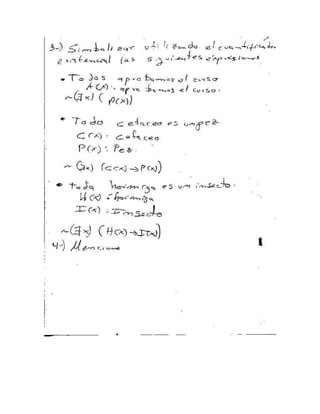 3-) Simbolizar utilizando el cuantificador
existencial las siguientes expresiones
• Todos aprobamos el curso
A(x): aprobamos el curso.
~(∃x) ( p(x))
• Todo cetaceo es un pez
C(x): Cetaceo
P(x): Pez.
~ (∃x) (C(x)→P(x))
• toda hormiga es un insecto.
H(x) = hormiga
I(x) : Insecto
~(∃x) (H(x)→I(x))
4-) Mencione